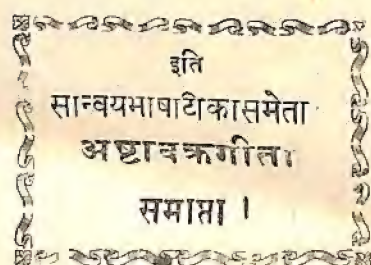 इति
सान्वयभाषाटीकासमेता
अष्टावक्रगीता
समाप्ता ।